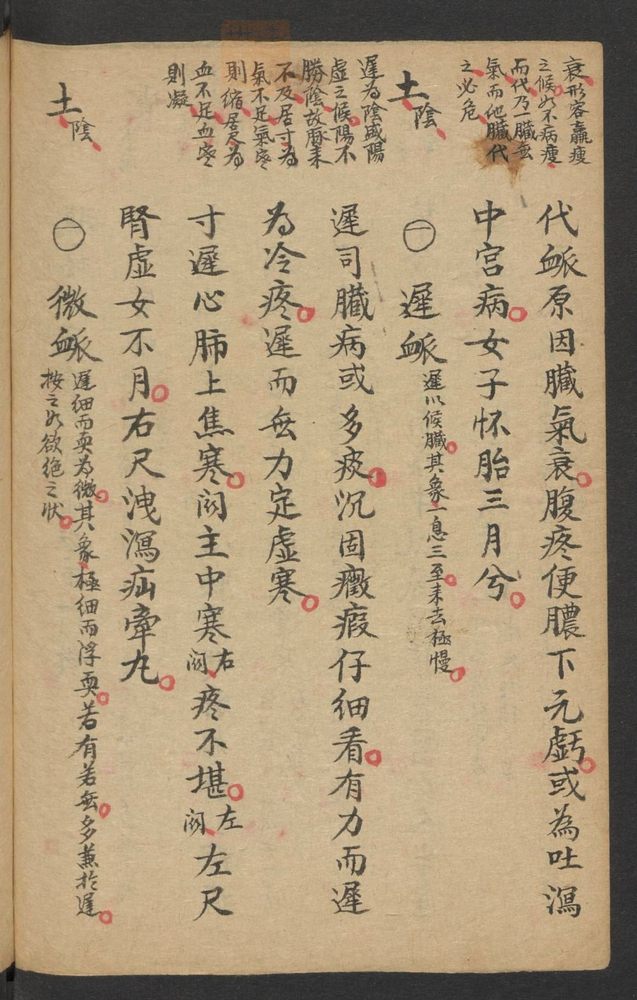 衰形容羸瘦
之候如不病瘦
而代乃一臟無
氣而他臟代
之必危
土陰
遲為陰盛陽
虛之候陽不
勝陰故脈来
不及居寸為
氣不足氣寒
則縮居尺為
血不足血寒
則凝
土陰
代衇原因臟氣衰腹疼便膿下元虧或為吐瀉
中宮病女子怀胎三月兮
㊀遲衇 遲以候臟其象一息三至来去極慢
遲司臟病或多痰沉固癥瘕仔细看有力而遲
为冷疼遲而无力定虛寒
寸遲心肺上焦寒関主中寒右関疼不堪左関左尺
腎虛女不月右尺洩瀉疝牽丸
㊀微衇 遲細而耎為微其象極细而浮耎若有若无多兼於遲
按之如欲絶之狀